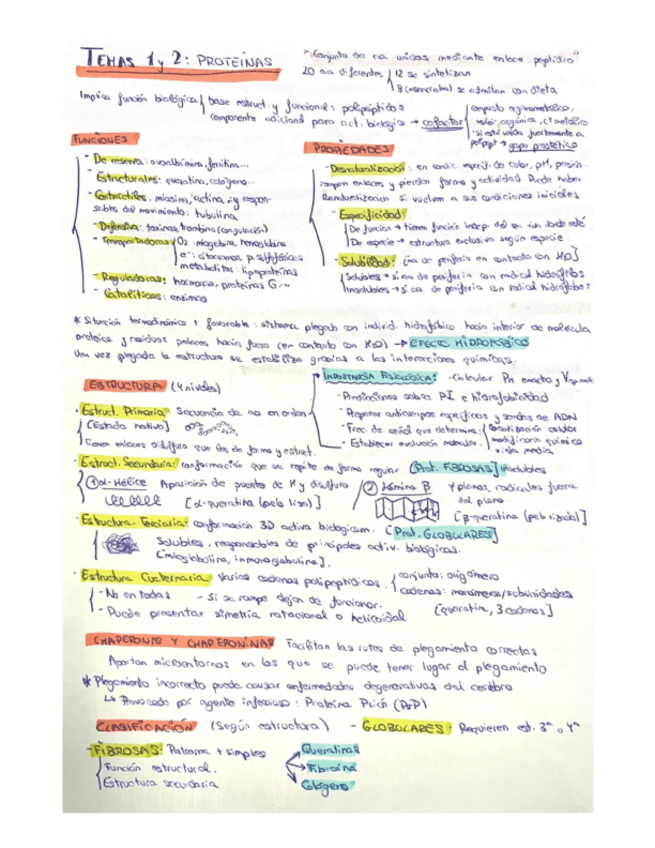 TEMAS 1 y 2: PROTEÍNAS
"Conjunto de aa unidos mediante enlace peptídico"
20 aa diferentes 12 se sintetizan
8 (esenciales) se asimilan con dieta
Implica función biológica base estruct. y funcional: polipéptidos
componente adicional para act. biológica → cofactor
compuesto organometálico,
orgánica, metálico
si está unido fuertemente a
→ grupo prostético
FUNCIONES
- De reserva: ovoalbúmina, ferritina...
- Estructurales: queratina, colágeno...
- Contráctiles: miosina, actina, y respon-
sables del movimiento: tubulina
- Defensiva: toxinas, trombina (coagulación)
- Transportadoras O2: mioglobina, hemoglobina
e-: citocromos, p.
metabolitos: lipoproteínas
- Reguladoras: hormonas, proteínas G...
- Catalíticas: enzimas
PROPIEDADES
- Desnaturalización: en condic. específ. de calor, pH, presión
rompen enlaces y pierden forma y actividad. Puede haber
Renaturalización si vuelven a sus condiciones iniciales
- Especificidad:
De función → tienen función indep. del en vivo donde esté
De especie → estructura exclusiva según especie
- Solubilidad: [aa de periferia en contacto con H2O]
Solubles → si aa de periferia con radical hidrófilos
Insolubles → si aa de periferia con radical hidrófobos
* Situación termodinámica + favorable: sistema plegado con individ. hidrofóbico hacia interior de molécula
proteica y residuos polares hacia fuera (en contacto con H2O) → EFECTO HIDROFÓBICO
Una vez plegada la estructura se estabiliza gracias a las interacciones químicas.
ESTRUCTURA (4 niveles)
IMPORTANCIA FISIOLÓGICA: - Calcular Pm exacto y
- Predicciones sobre PI e hidrofobicidad
- Preparar anticuerpos específicos y sondas de ADN
- Frec. de señal que determina: localización celular
modificación química
vida media
- Establecer evolución molecular
· Estruct. Primaria: Secuencia de aa en orden
[Estado nativo]
Tienen enlaces disulfuro que dan forma y estruct.
· Estruct. Secundaria: conformación que se repite de forma regular [Prot. FIBROSAS] insolubles
① α-Hélice Aparición de puentes de H y disulfuro
[α-queratina (pelo liso)]
② lámina β + planos, radicales fuera
del plano
[β-queratina (pelo rizado)]
· Estructura Terciaria: conformación 3D activa biológicam. [Prot. GLOBULARES]
Solubles. responsables de principales activ. biológicas.
[mioglobina, inmunoglobulina].
· Estructura Cuaternaria: Varias cadenas polipeptídicas. conjunto: oligómero
cadenas: monómeros/subunidades
- No en todas - Si se rompe dejan de funcionar.
[queratina, 3 cadenas]
- Puede presentar simetría rotacional o helicoidal
CHAPERONAS Y CHAPERONINAS Facilitan las rutas de plegamiento correctas
Aportan microentornos en los que se puede tener lugar el plegamiento
* Plegamiento incorrecto puede causar enfermedades degenerativas del cerebro
↳ Provocado por agente infeccioso: Proteína Prión (PrP)
CLASIFICACIÓN (Según estructura) - GLOBULARES: Requieren est. 3ª o 4ª
- FIBROSAS: Patrones + simples
Función estructural.
Estructura secundaria
Queratinas
Fibroína
Colágeno